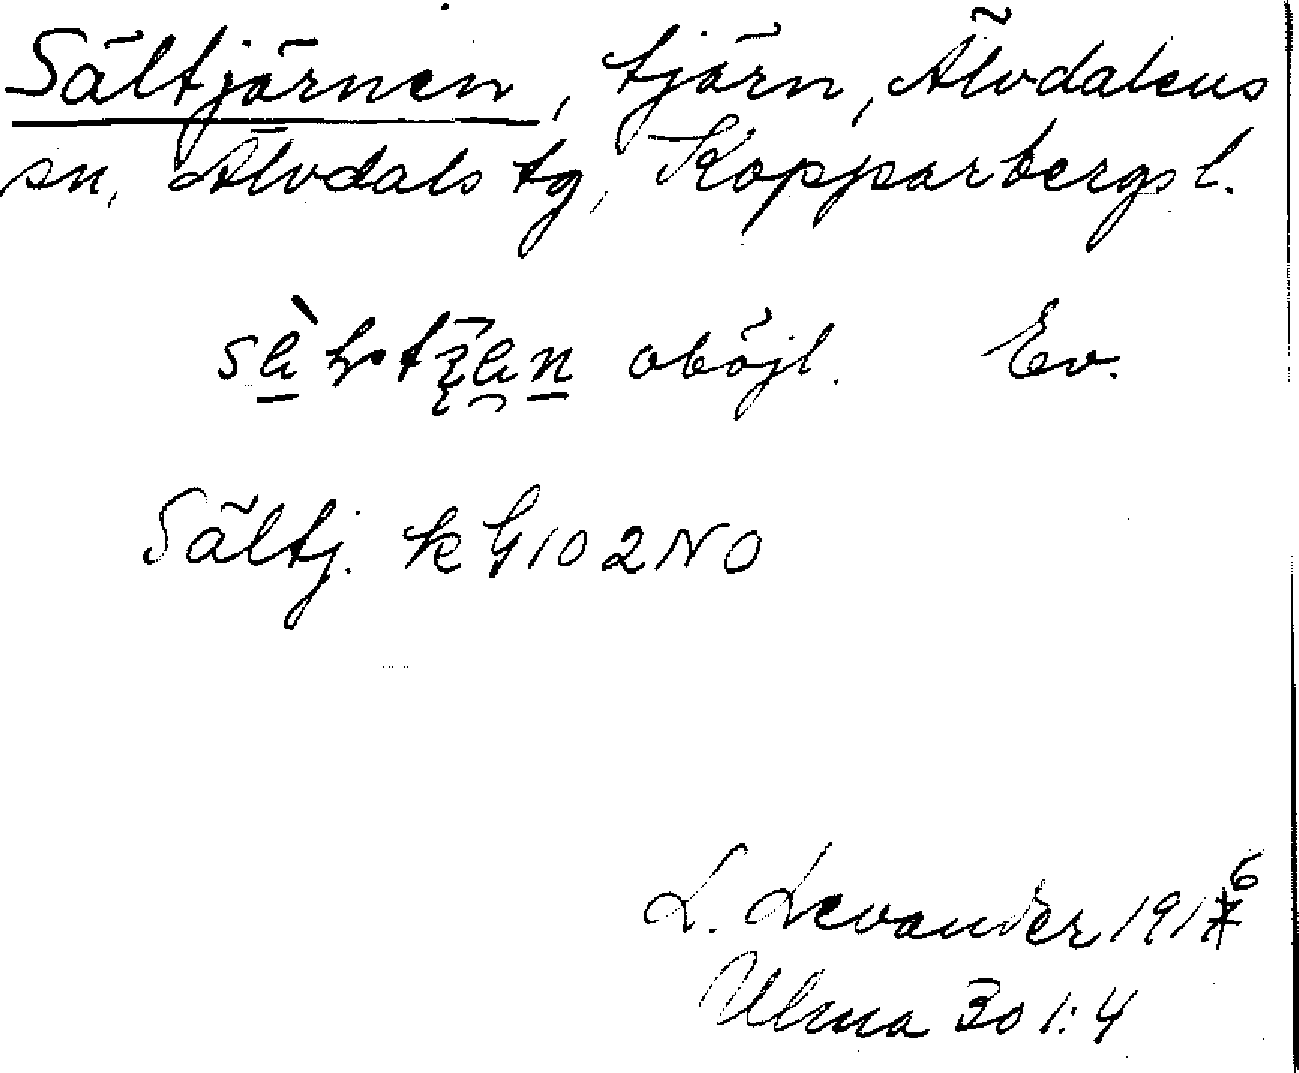 Sältjärnen, tjärn, Älvdalens
sn, Älvdals tg, Kopparbergs l.
oböjl. Ev.
Sältj. k G 102 NO
L. Levander 1916
Ulma 30 1:4